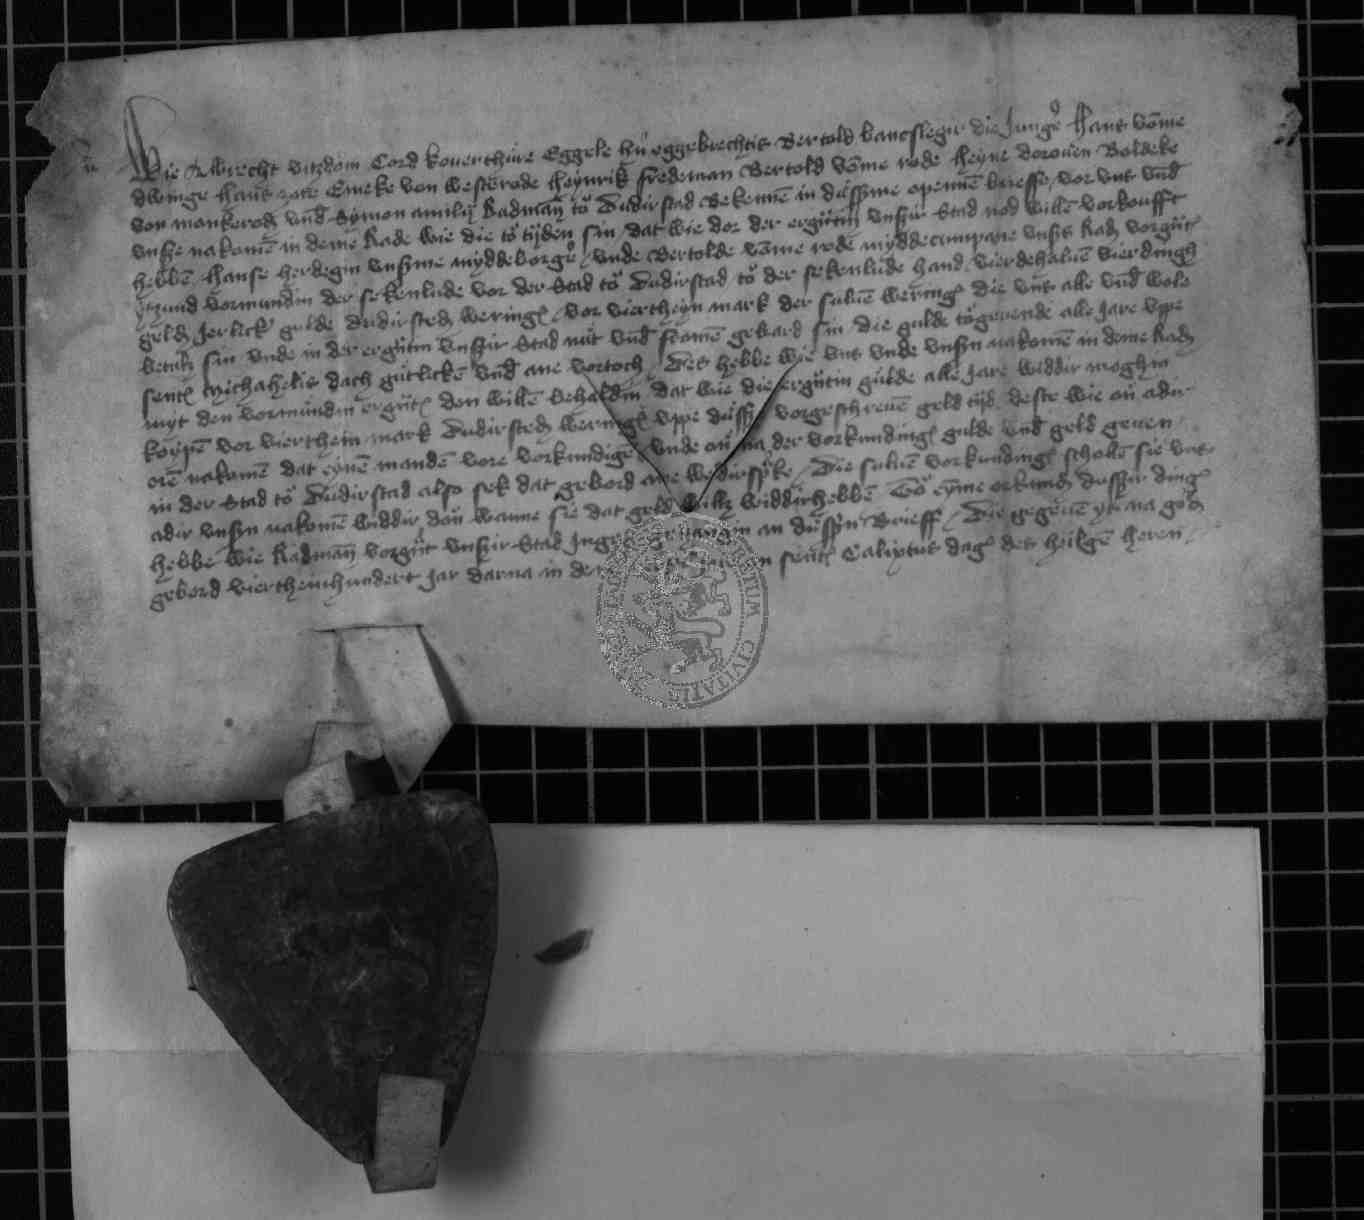 Wie Albrecht vitzdom Cord kouerthure Eggele hu eggebrechtis Bertold bancslegir die Junge Hans vome
dwenge Hans zote Emeke von westerode Heynrik Fredeman Bertold vome rode Heyne dorouen Boldeke
von mankerod vnd Symon amilij Radman to Dudirstad Bekennen in dussme openen brieffe vor vns vnd
vnsze nakomen in deme Rade wie die to tijden sin dat wie dor der ergutin vnszir Stad nod willen vorkoufft
hebben Hanse herdegin vnszme myddeborger vnde Bertolde vome rode myddecumpane vnses Rad vorgut
ytzund vormundin der sekenlude vor der Stad to Dudirstad to der sekenlude hand vierdehaluen vierdingh
geld Jerlicker gulde dudirsted weringe vor viertheyn mark der suluen weringe die vns alle vnd wole
betalt sin vnde in der ergutin vnszir Stad nut vnd fromen gekard sin die gulde togeuende alle Jare vppe
sente Michahelis dach gutlicken vnd ane vortoch Des hebbe wie vns vnde vnszin nakomen in deme Rade
myt den vormundin ergut den willen behaldin dat wie die ergutin gulde alle Jare widdir moghin
koypen vor vierthein mark Dudirsted weringe vppe dusse vorgeschreuen geld tijd deste wie on adir
oren nakomen dat eynen manden vore vorkundigen vnde on na der vorkundinge gulde vnd geld geuen
in der Stad to Dudirstad also sek dat gebord ane wedirsprke Die suluen vorkundinge schollen sie vns
adir vnszin nakomen widdir don wanne sie dat geld willen widdirhebben To eyme orkunde dussir dinge
hebbe wie Radman vorgut vnszir Stad Inges gehangin an dussen Brieff Die gegeuen ys na gods
gebord viertheinhundert Jar darna in dem Jare an sente Calixtus dage des heilgen heren
CIVITATIS